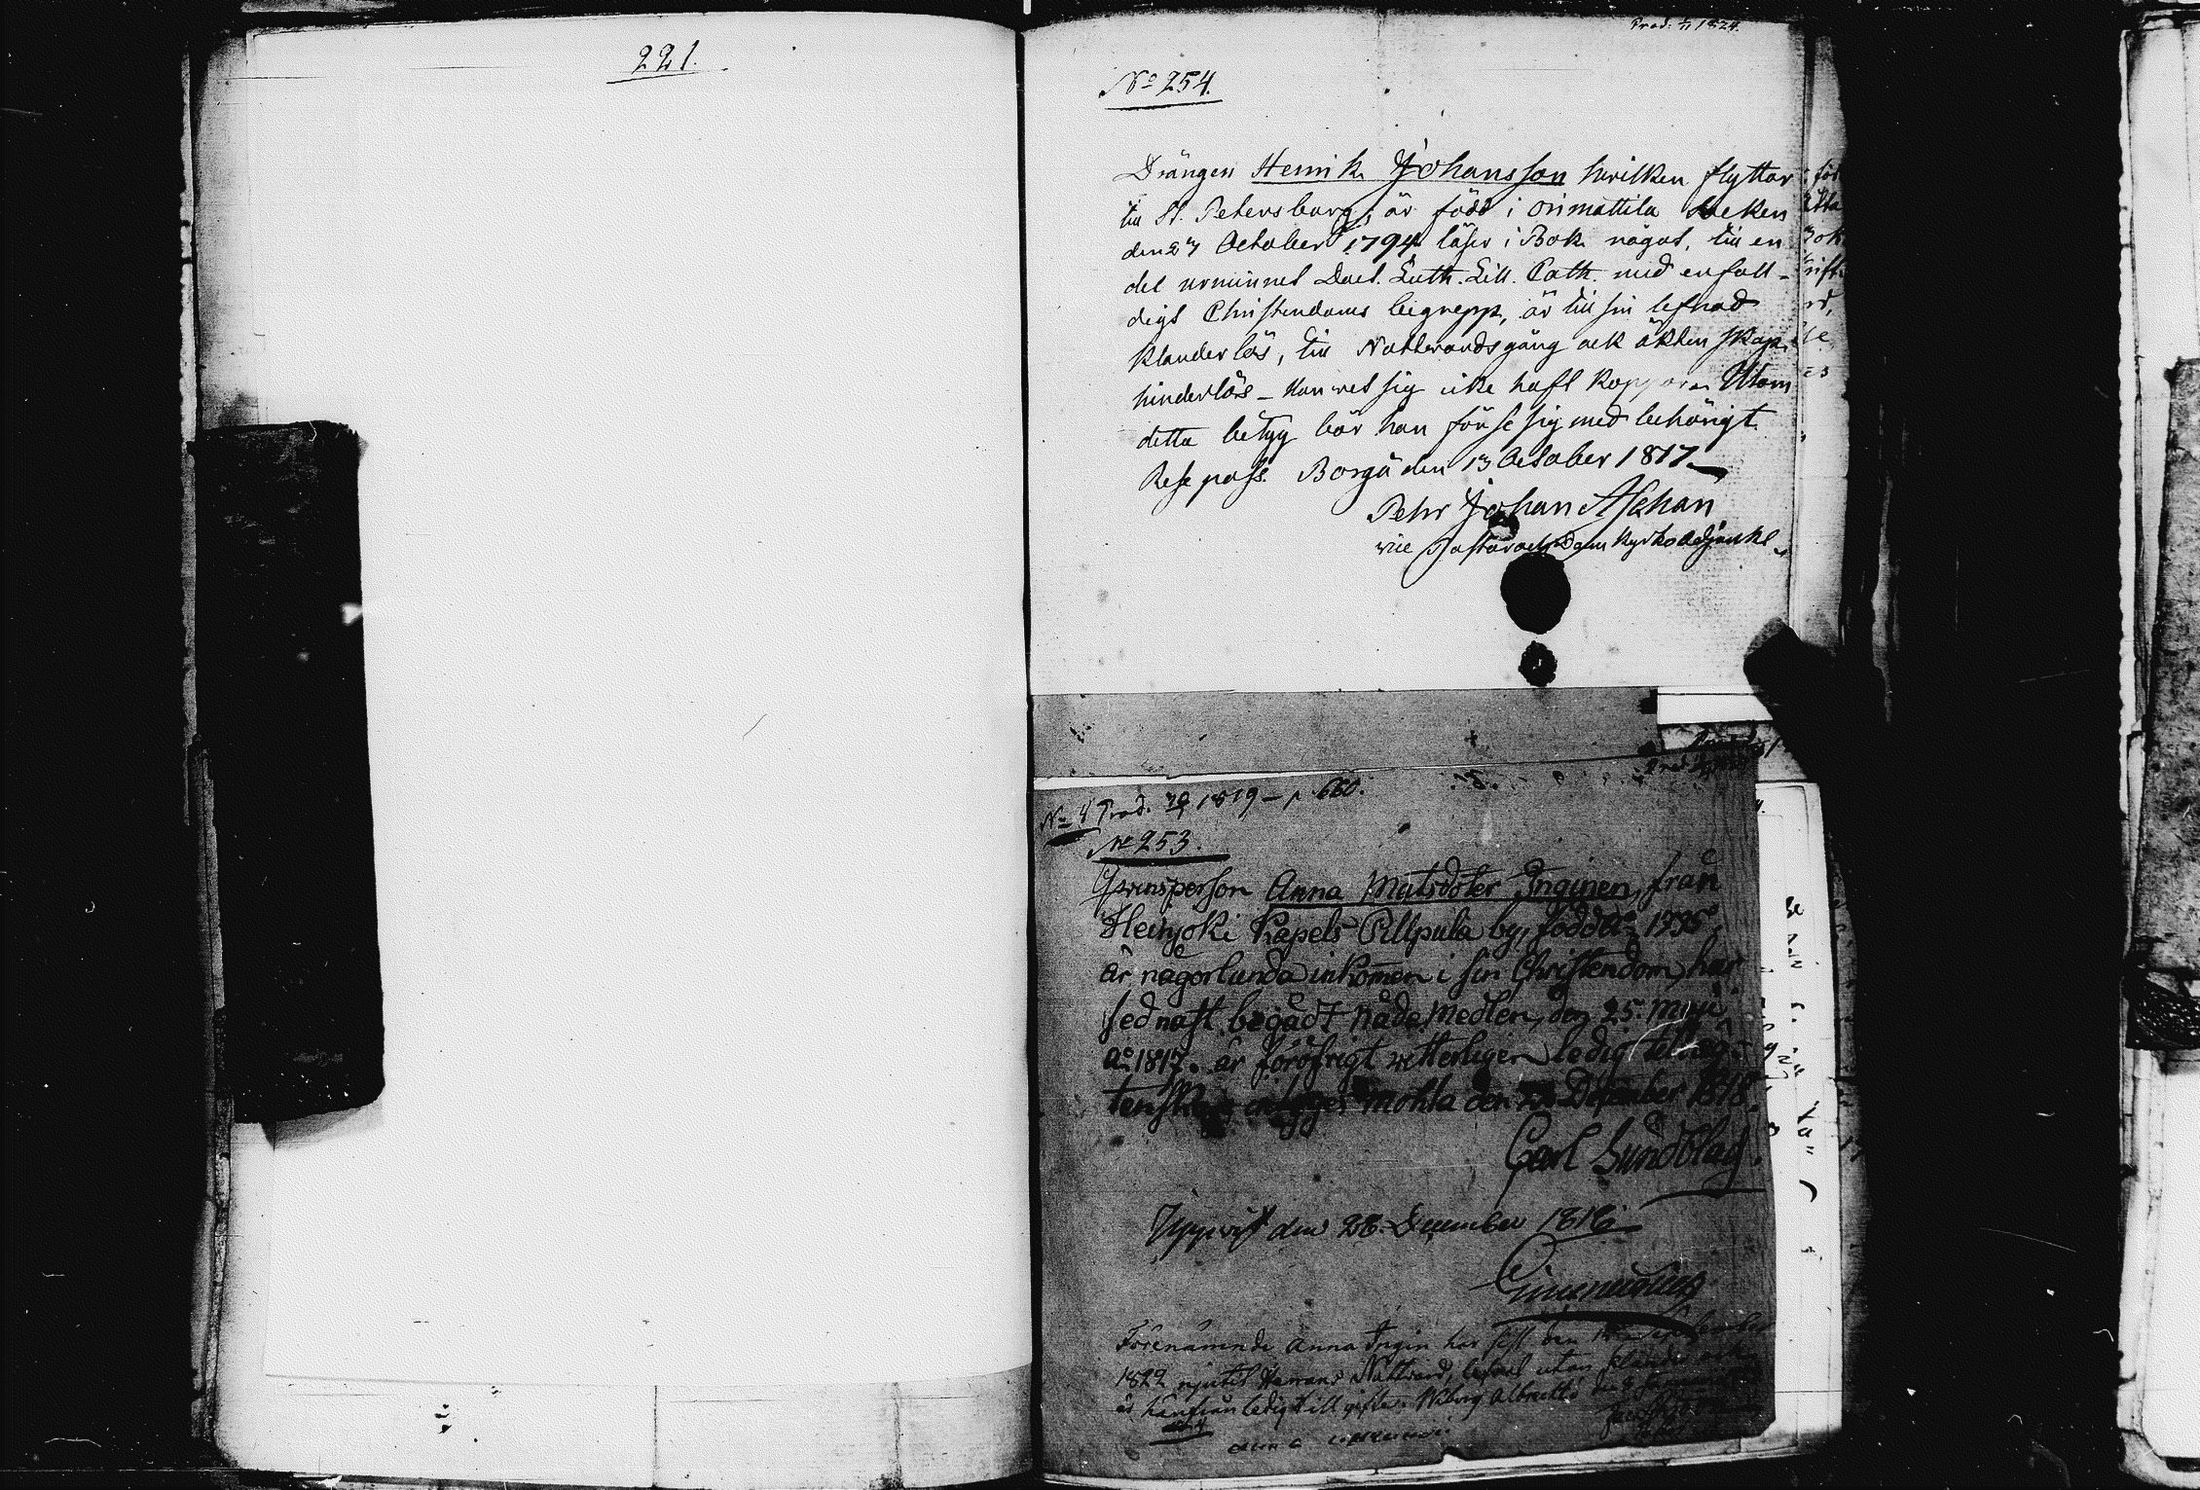 221.
Prod. 1/11 1824.
No 254.
Drängen Henrik Johansson hvilken flyttar
till St. Petersburg, är född i Orimattila Socken
den 27 October 1794 läser i Bok något, till en
del urminnet Doct. Luth. Lill. Cath. med enfall-
digt Christendoms begrepp, är till sin lefnad
klanderlös, till Nattvardsgång och äktenskap
hinderlös – Han vet sig icke haft koppor. Utom
detta betyg bör han förse sig med behörigt
Rese pass. Borgå den 13 October 1817
Pehr Johan Aschan
vice Pastor och Dom Kyrko Adjunkt
No 4 Prod. 1819 – p. 660.
No 253.
Qvinsperson Anna Matsdoter Inginen, från
Heinjoki Kapels Pillpula by, född Ao 1795
är någorlunda inkommen i sin Christendom, har
sednast begådt Nåde Medlen, den 25. Maji
Ao 1817. är föröfrigt vetterligen ledig till äg-
tenskap Mohla den December 1818.
Carl Sundblad.
Uppvist den 28. December 1818
Förenämnde Anna Ingin har sist den
1822 njutit Herrans Nattvard, lefvat utan klander och
är härifrån ledig till gifte. Wiborg